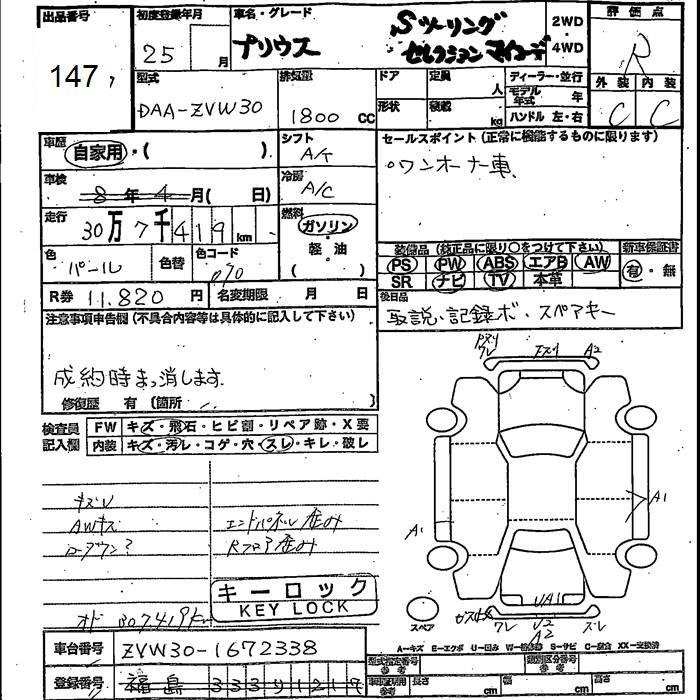 出品番号 初度登録年月 車名・グレード 評価点
147 25 月 プリウス Sツーリング 2WD R
セレクション マイコーデ 4WD
型式 排気量 ドア 定員 ディーラー・並行 外装 内装
DAA-ZVW30 1800 CC 人 モデル年式 年 C C
形状 積載 kg ハンドル 左・右
車歴 シフト セールスポイント (正常に機能するものに限ります)
自家用・( ) A/T ・ワンオーナー車
車検 8年4月( 日) 冷房 A/C
走行 30万7千419km 燃料 ガソリン
軽油
( )
装備品 (純正品に限り○をつけて下さい) 新車保証書
色 パール 色替 色コード 070 PS PW ABS エアB AW 有・無
SR ナビ TV 本革
R券 11,820 円 名変期限 月 日 後日品
注意事項申告欄 (不具合内容等は具体的に記入して下さい) 取説・記録ボ・スペアキー
成約時まっ消します。
修復歴 有 (箇所 )
検査員 FW キズ・飛石・ヒビ割・リペア跡・X要
記入欄 内装 キズ・汚レ・コゲ・穴・スレ・キレ・破レ
キズレ
AWキズ エンドパネル歪み
ローダウン? Rフロア歪み
キーロック
KEY LOCK
オド 307419km
A2
A1
A1
スペア
ワレ U2 ズレ
A2
A-キズ E-エクボ U-凹み W-補修跡 S-サビ C-腐食 XX-交換済
車台番号 ZVW30-1672338 型式指定番号 参考 類別区分番号 参考
登録番号 福島 333リ1217 長さ cm 幅 cm 高さ cm